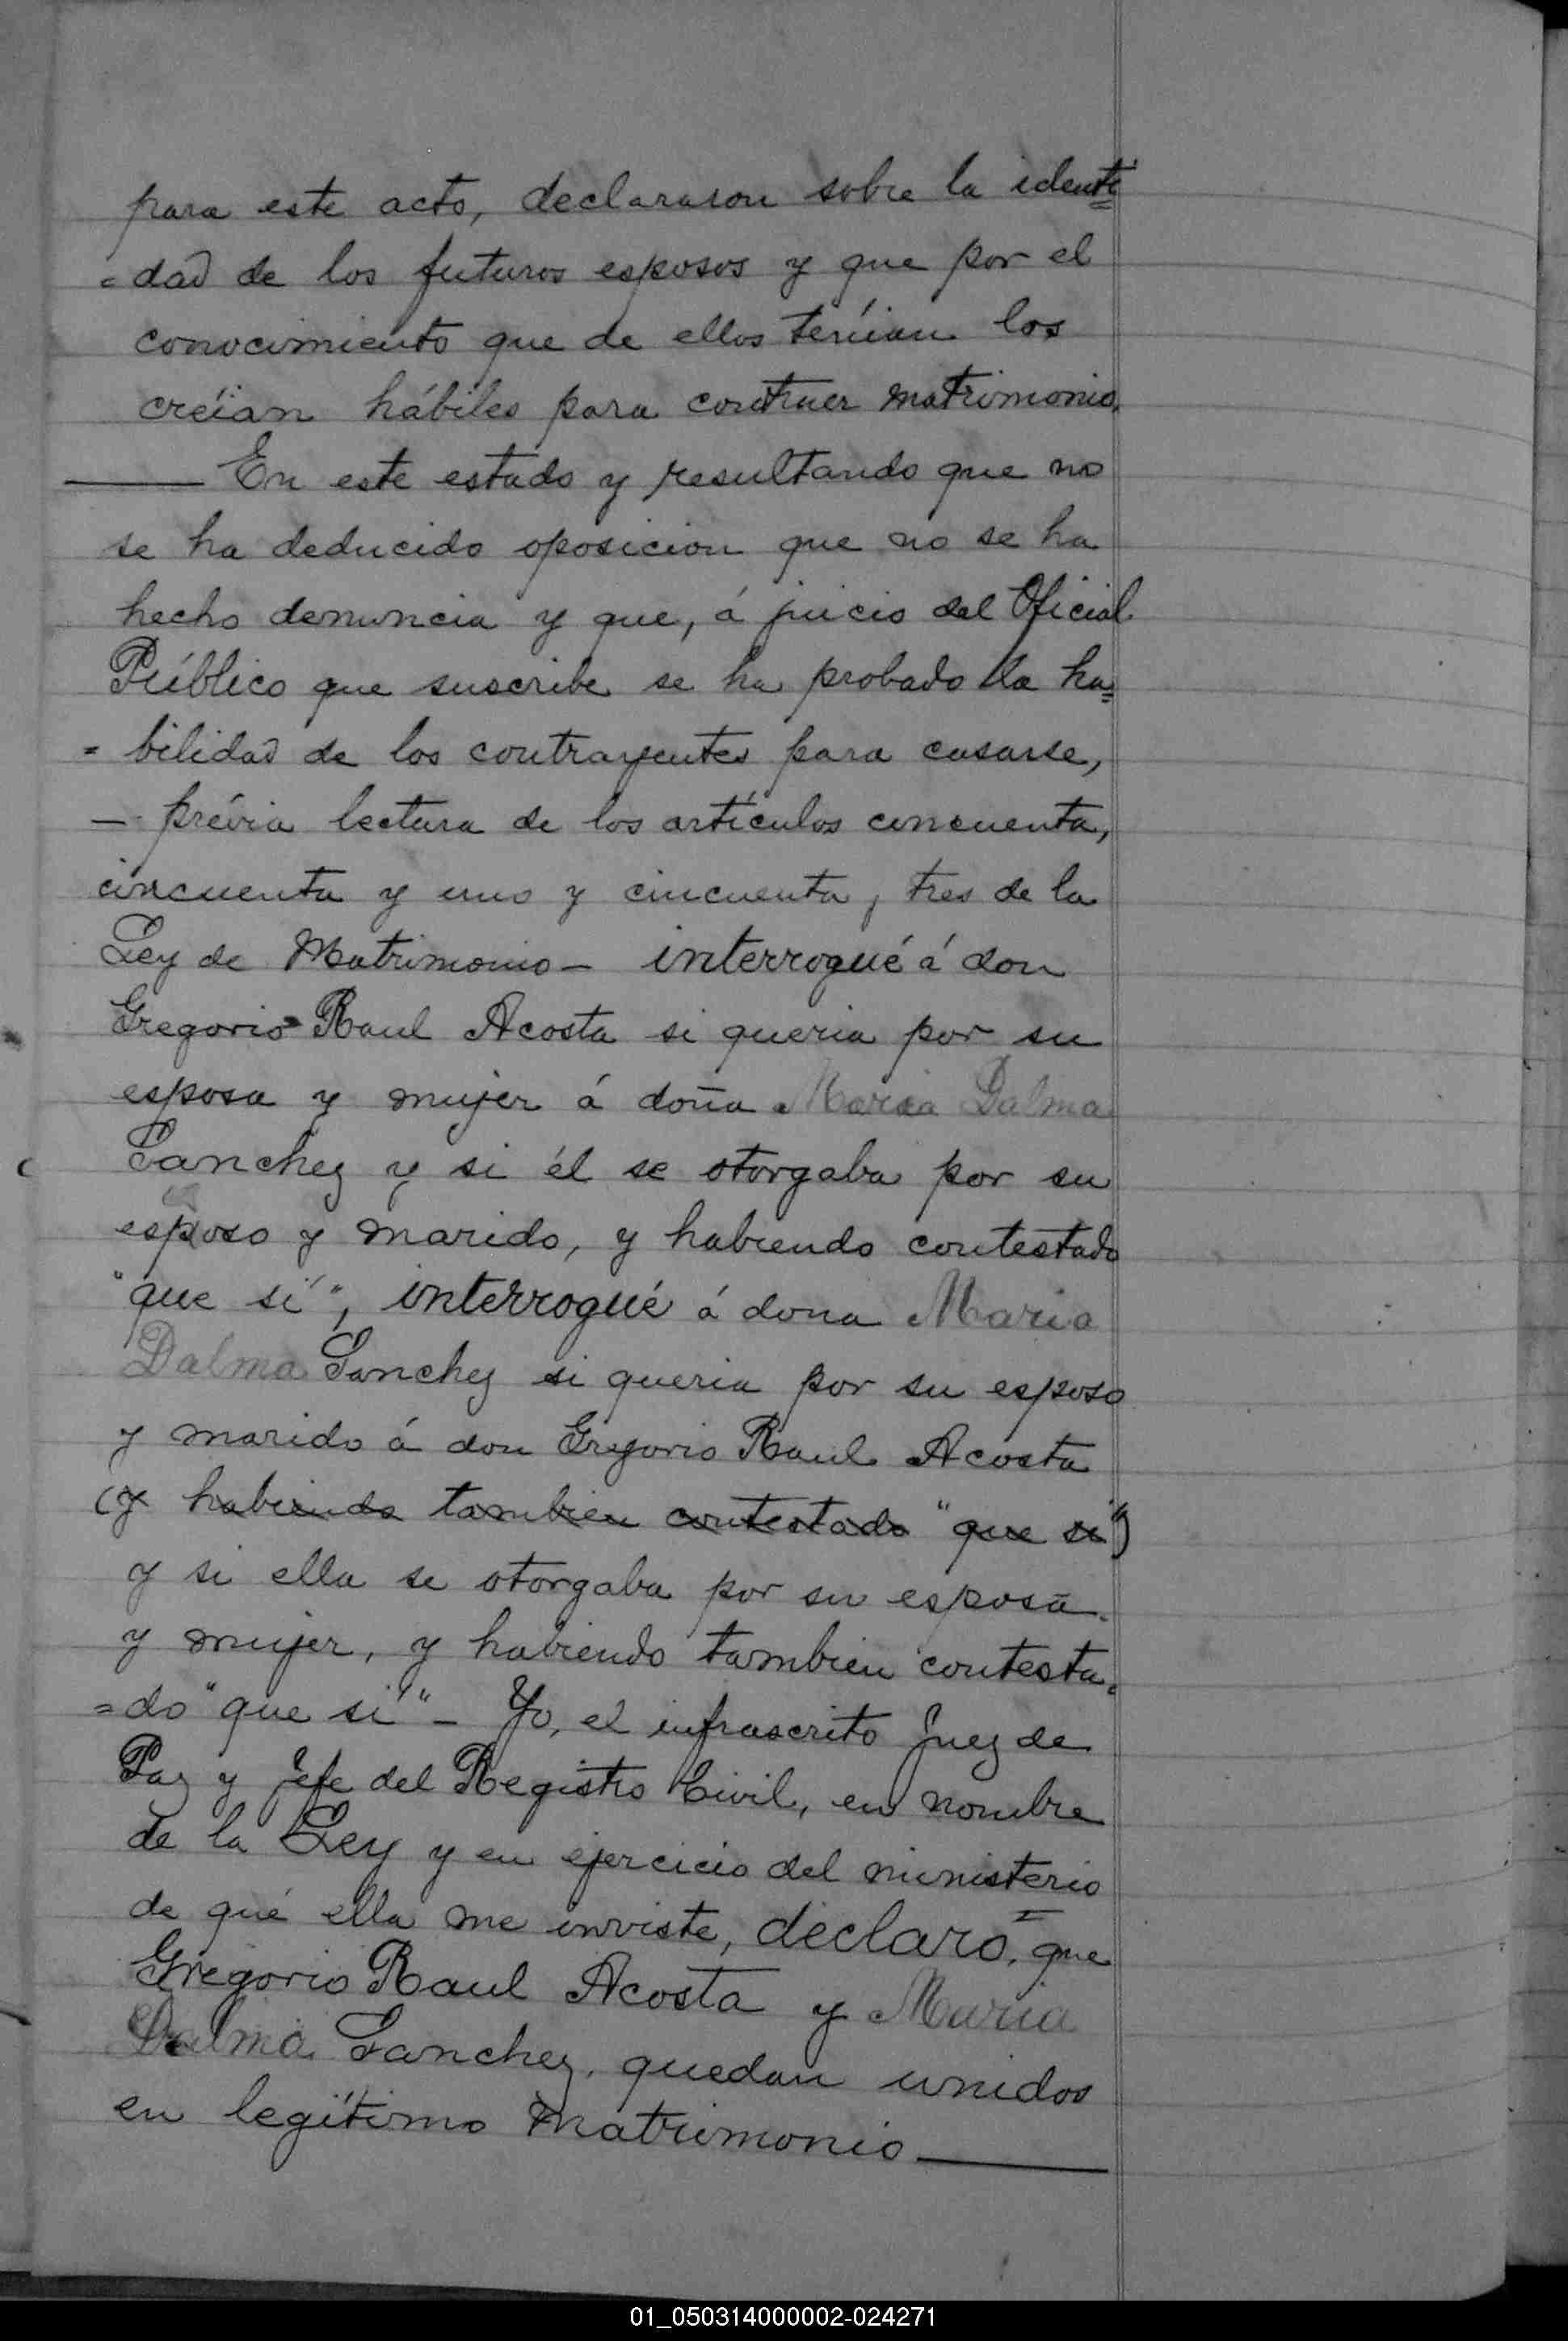 para este acto, declararon sobre la identi
=dad de los futuros esposos y que por el
conocimiento que de ellos tenían los
creían hábiles para contraer matrimonio.
—— En este estado y resultando que no
se ha deducido oposicion que no se ha
hecho denuncia y que, á juicio del Oficial
Público que suscribe se ha probado la ha=
=bilidad de los contrayentes para casarse,
— prévia lectura de los artículos cincuenta,
cincuenta y uno y cincuenta y tres de la
Ley de Matrimonio — interrogué á don
Gregorio Raul Acosta si queria por su
esposa y mujer á doña Maria Dalma
Sanchez y si él se otorgaba por su
esposo y marido, y habiendo contestado
"que sí", interrogué á dona Maria
Dalma Sanchez si queria por su esposo
y marido á don Gregorio Raul Acosta
(y habiendo tambien contestado "que si")
y si ella se otorgaba por su esposa
y mujer, y habiendo tambien contesta=
=do "que si" — Yo, el infrascrito Juez de
Paz y Jefe del Registro Civil, en nombre
de la Ley y en ejercicio del ministerio
de que ella me inviste, declaro, que
Gregorio Raul Acosta y Maria
Dalma Sanchez, quedan unidos
en legítimo matrimonio ——
01_050314000002-024271